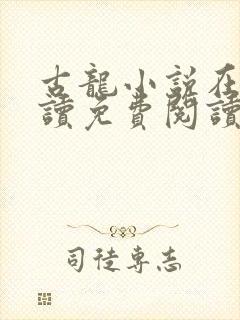 古龍小說在
讀免費閱讀
司徒專志